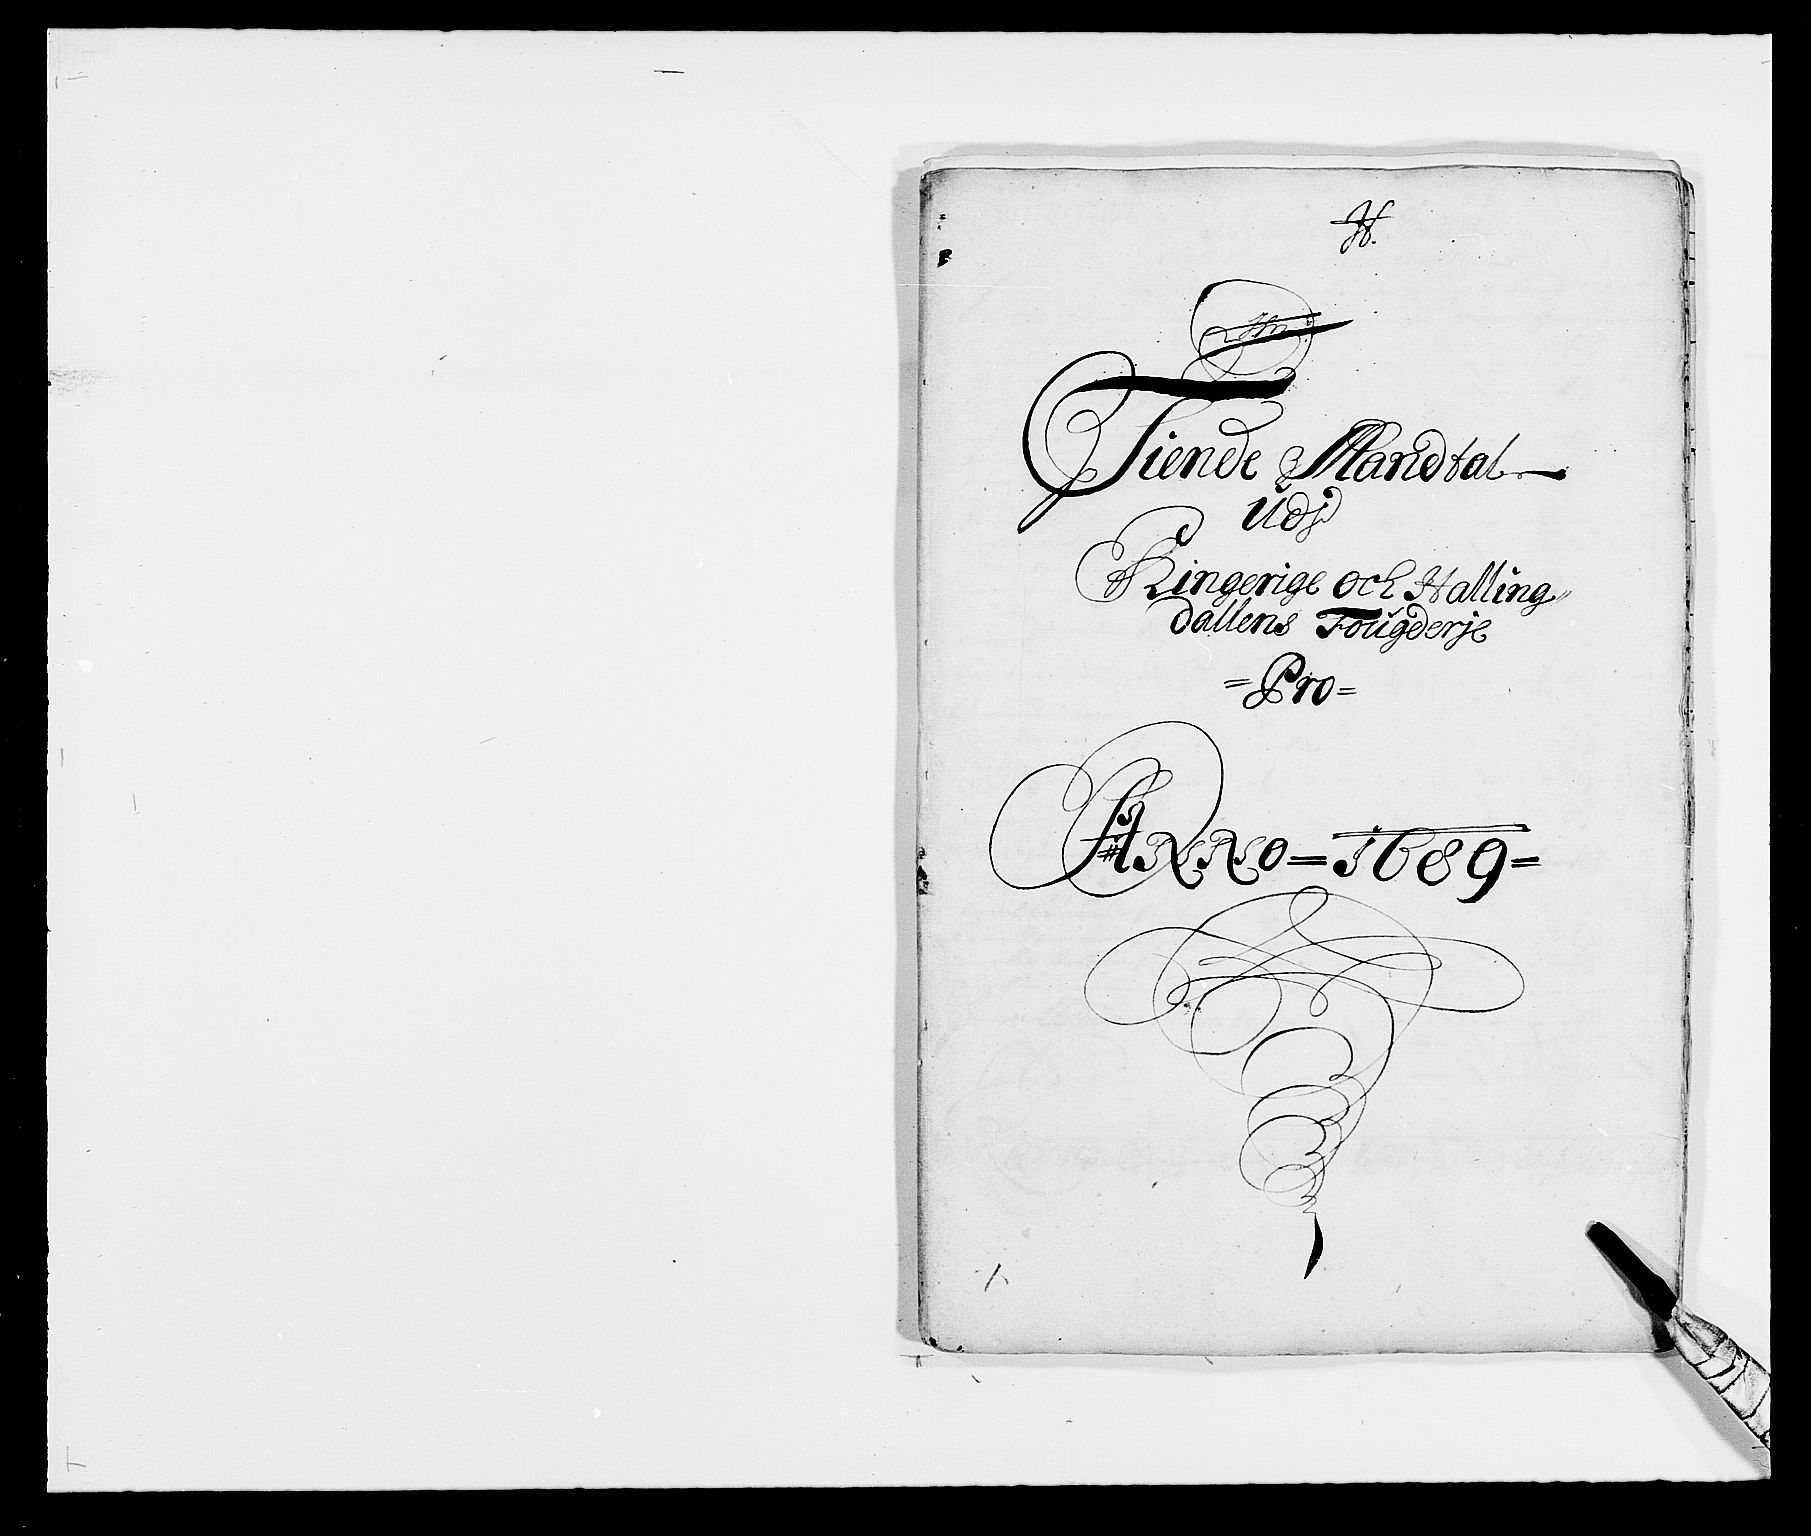 H.
Tiende Mandtal
Udj
Ringerige och Halling
dallens Fougderje
=Pro=
Anno=1689=